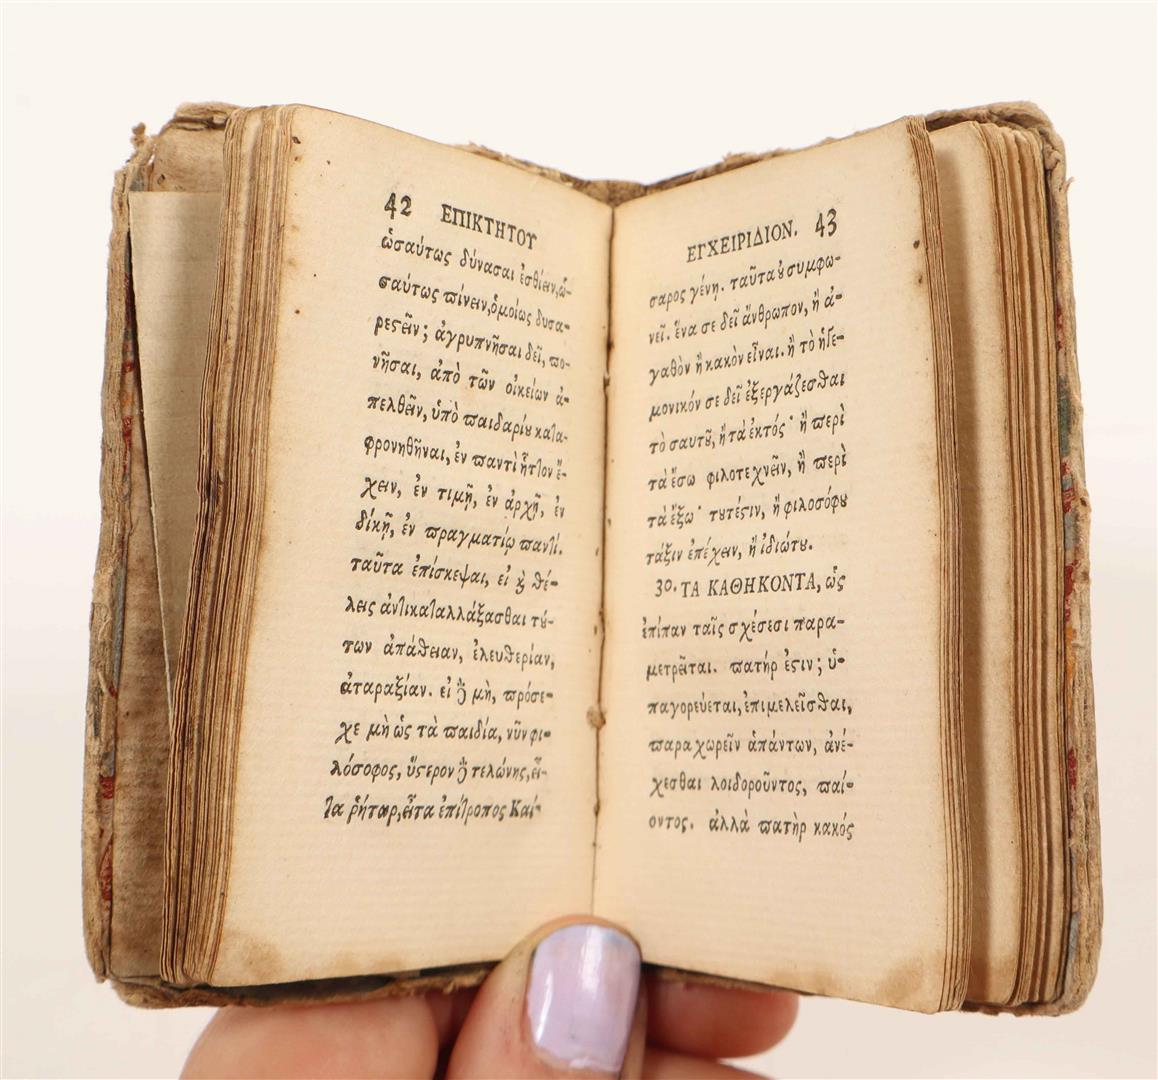 42 ΕΠΙΚΤΗΤΟΥ
ὡσαύτως δύνασαι ἐσθίειν, ὡ-
σαύτως πίνειν, ὁμοίως δυσα-
ρεστεῖν; ἀγρυπνῆσαι δεῖ, πο-
νῆσαι, ἀπὸ τῶν οἰκείων ἀ-
πελθεῖν, ὑπὸ παιδαρίου κατα-
φρονηθῆναι, ἐν παντὶ ἧττον ἔ-
χειν, ἐν τιμῇ, ἐν ἀρχῇ, ἐν
δίκῃ, ἐν πραγματίῳ παντί.
ταῦτα ἐπίσκεψαι, εἰ καὶ θέ-
λεις ἀντικαταλλάξασθαι τού-
των ἀπάθειαν, ἐλευθερίαν,
ἀταραξίαν. εἰ δὲ μὴ, πρόσε-
χε μὴ ὡς τὰ παιδία, νῦν φι-
λόσοφος, ὕστερον δὲ τελώνης, εἶ-
τα ῥήτωρ, εἶτα ἐπίτροπος Καί-
ΕΓΧΕΙΡΙΔΙΟΝ. 43
σαρος γένῃ. ταῦτα οὐ συμφω-
νεῖ. ἕνα σε δεῖ ἄνθρωπον, ἢ ἀ-
γαθὸν ἢ κακὸν εἶναι. ἢ τὸ ἡγε-
μονικόν σε δεῖ ἐξεργάζεσθαι
τὸ σαυτοῦ, ἢ τὰ ἐκτός· ἢ περὶ
τὰ ἔσω φιλοτεχνεῖν, ἢ περὶ
τὰ ἔξω· τουτέστιν, ἢ φιλοσόφου
τάξιν ἐπέχειν, ἢ ἰδιώτου.
30. ΤΑ ΚΑΘΗΚΟΝΤΑ, ὡς
ἐπίπαν ταῖς σχέσεσι παρα-
μετρεῖται. πατήρ ἐστιν; ὑ-
παγορεύεται, ἐπιμελεῖσθαι,
παραχωρεῖν ἁπάντων, ἀνέ-
χεσθαι λοιδοροῦντος, παί-
οντος. ἀλλὰ πατὴρ κακός